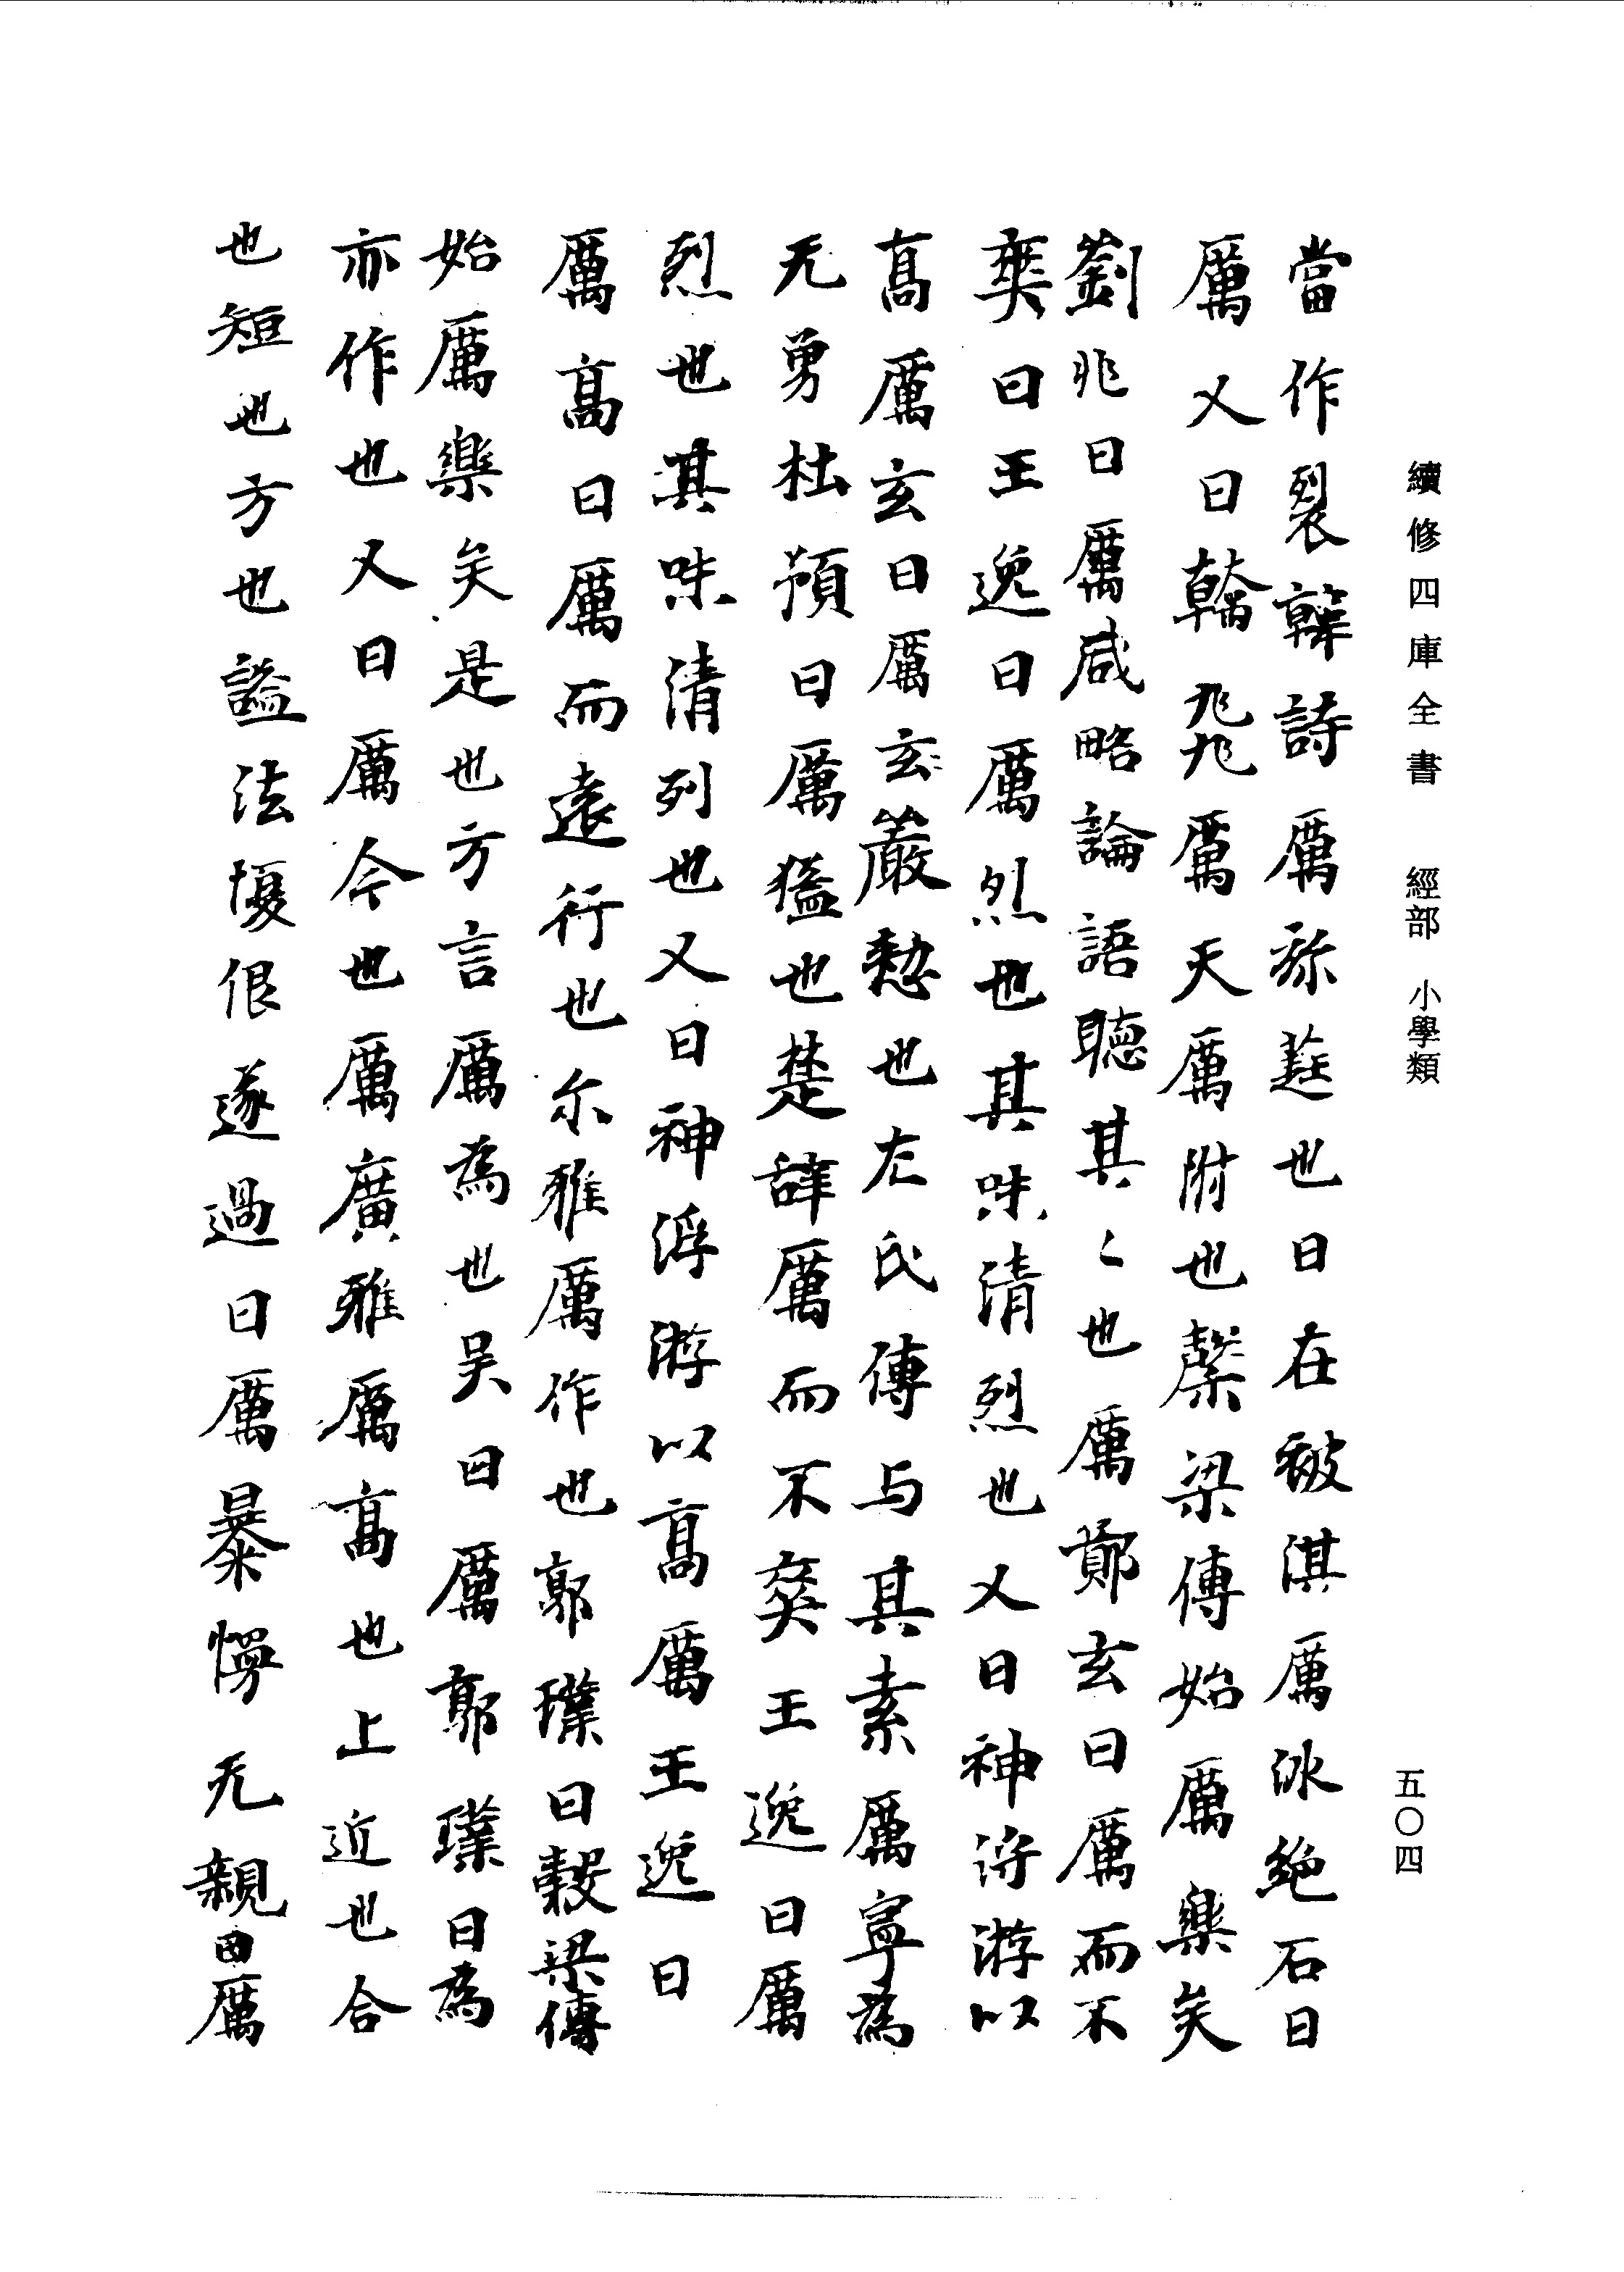 續修四庫全書 經部 小學類
五〇四
當作裂韓詩厲祢莛也曰在彼淇厲冰絶石曰
厲又曰翰飛厲天厲附也榖梁傳始厲樂矣
劉兆曰厲咸略論語聽其〻也厲鄭玄曰厲而不
爽曰王逸曰厲烈也其味清烈也又曰神浮游以
高厲玄曰厲玄〻嚴憗也左氏傳与其素厲寧為
无勇杜預曰厲猛也楚辞厲而不爽王逸曰厲
烈也其味清列也又曰神浮游以高厲王逸曰
厲高曰厲而遠行也尓雅厲作也郭璞曰榖梁傳
始厲樂矣是也方言厲為也吴曰厲郭璞曰為
亦作也又曰厲今也厲廣雅厲高也上近也合
也短也方也謚法愎佷遂過曰厲暴慢无親曰厲